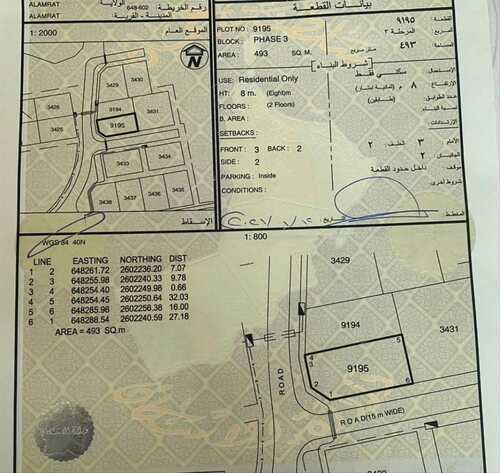 ALAMRAT
ALAMRAT
648-602
الولاية
المدينة - القرية
رقم الخريطة
بيانات القطعة
1: 2000
الموقع العام
N
3430
3429
3426
3425
9194
9195
3433
3434
3437
PLOT NO : 9195
BLOCK : PHASE 3
AREA : 493 SQ. M.
شروط البناء
USE: Residential Only
HT: 8 m. (Eight)m
FLOORS : (2 Floors)
B. AREA :
SETBACKS :
FRONT : 3 BACK : 2
SIDE : 2
PARKING : Inside
CONDITIONS :
القطعة: ٩١٩٥
المربع: المرحلة ٣
المساحة ٤٩٣ متر مربع
الاستعمال: سكني فقط
الارتفاع: ٨ م (ثمانية امتار)
عدد الطوابق: (طابقين)
الارتدادات:
الأمام ٣ الخلف ٢
الجانبين ٢
موقف داخل حدود القطعة
شروط أخرى
المخطط
الإسقاط
WGS 84 40N
1: 800
LINE EASTING NORTHING DIST
1 2 648261.72 2602236.20 7.07
2 3 648255.98 2602240.33 9.78
3 4 648254.40 2602249.98 0.66
4 5 648254.45 2602250.64 32.03
5 6 648285.96 2602256.38 16.00
6 1 648288.54 2602240.59 27.18
AREA = 493 SQ.m
3429
9194
3431
9195
1
2
3
4
5
6
ROAD
ROAD(15 m WIDE)